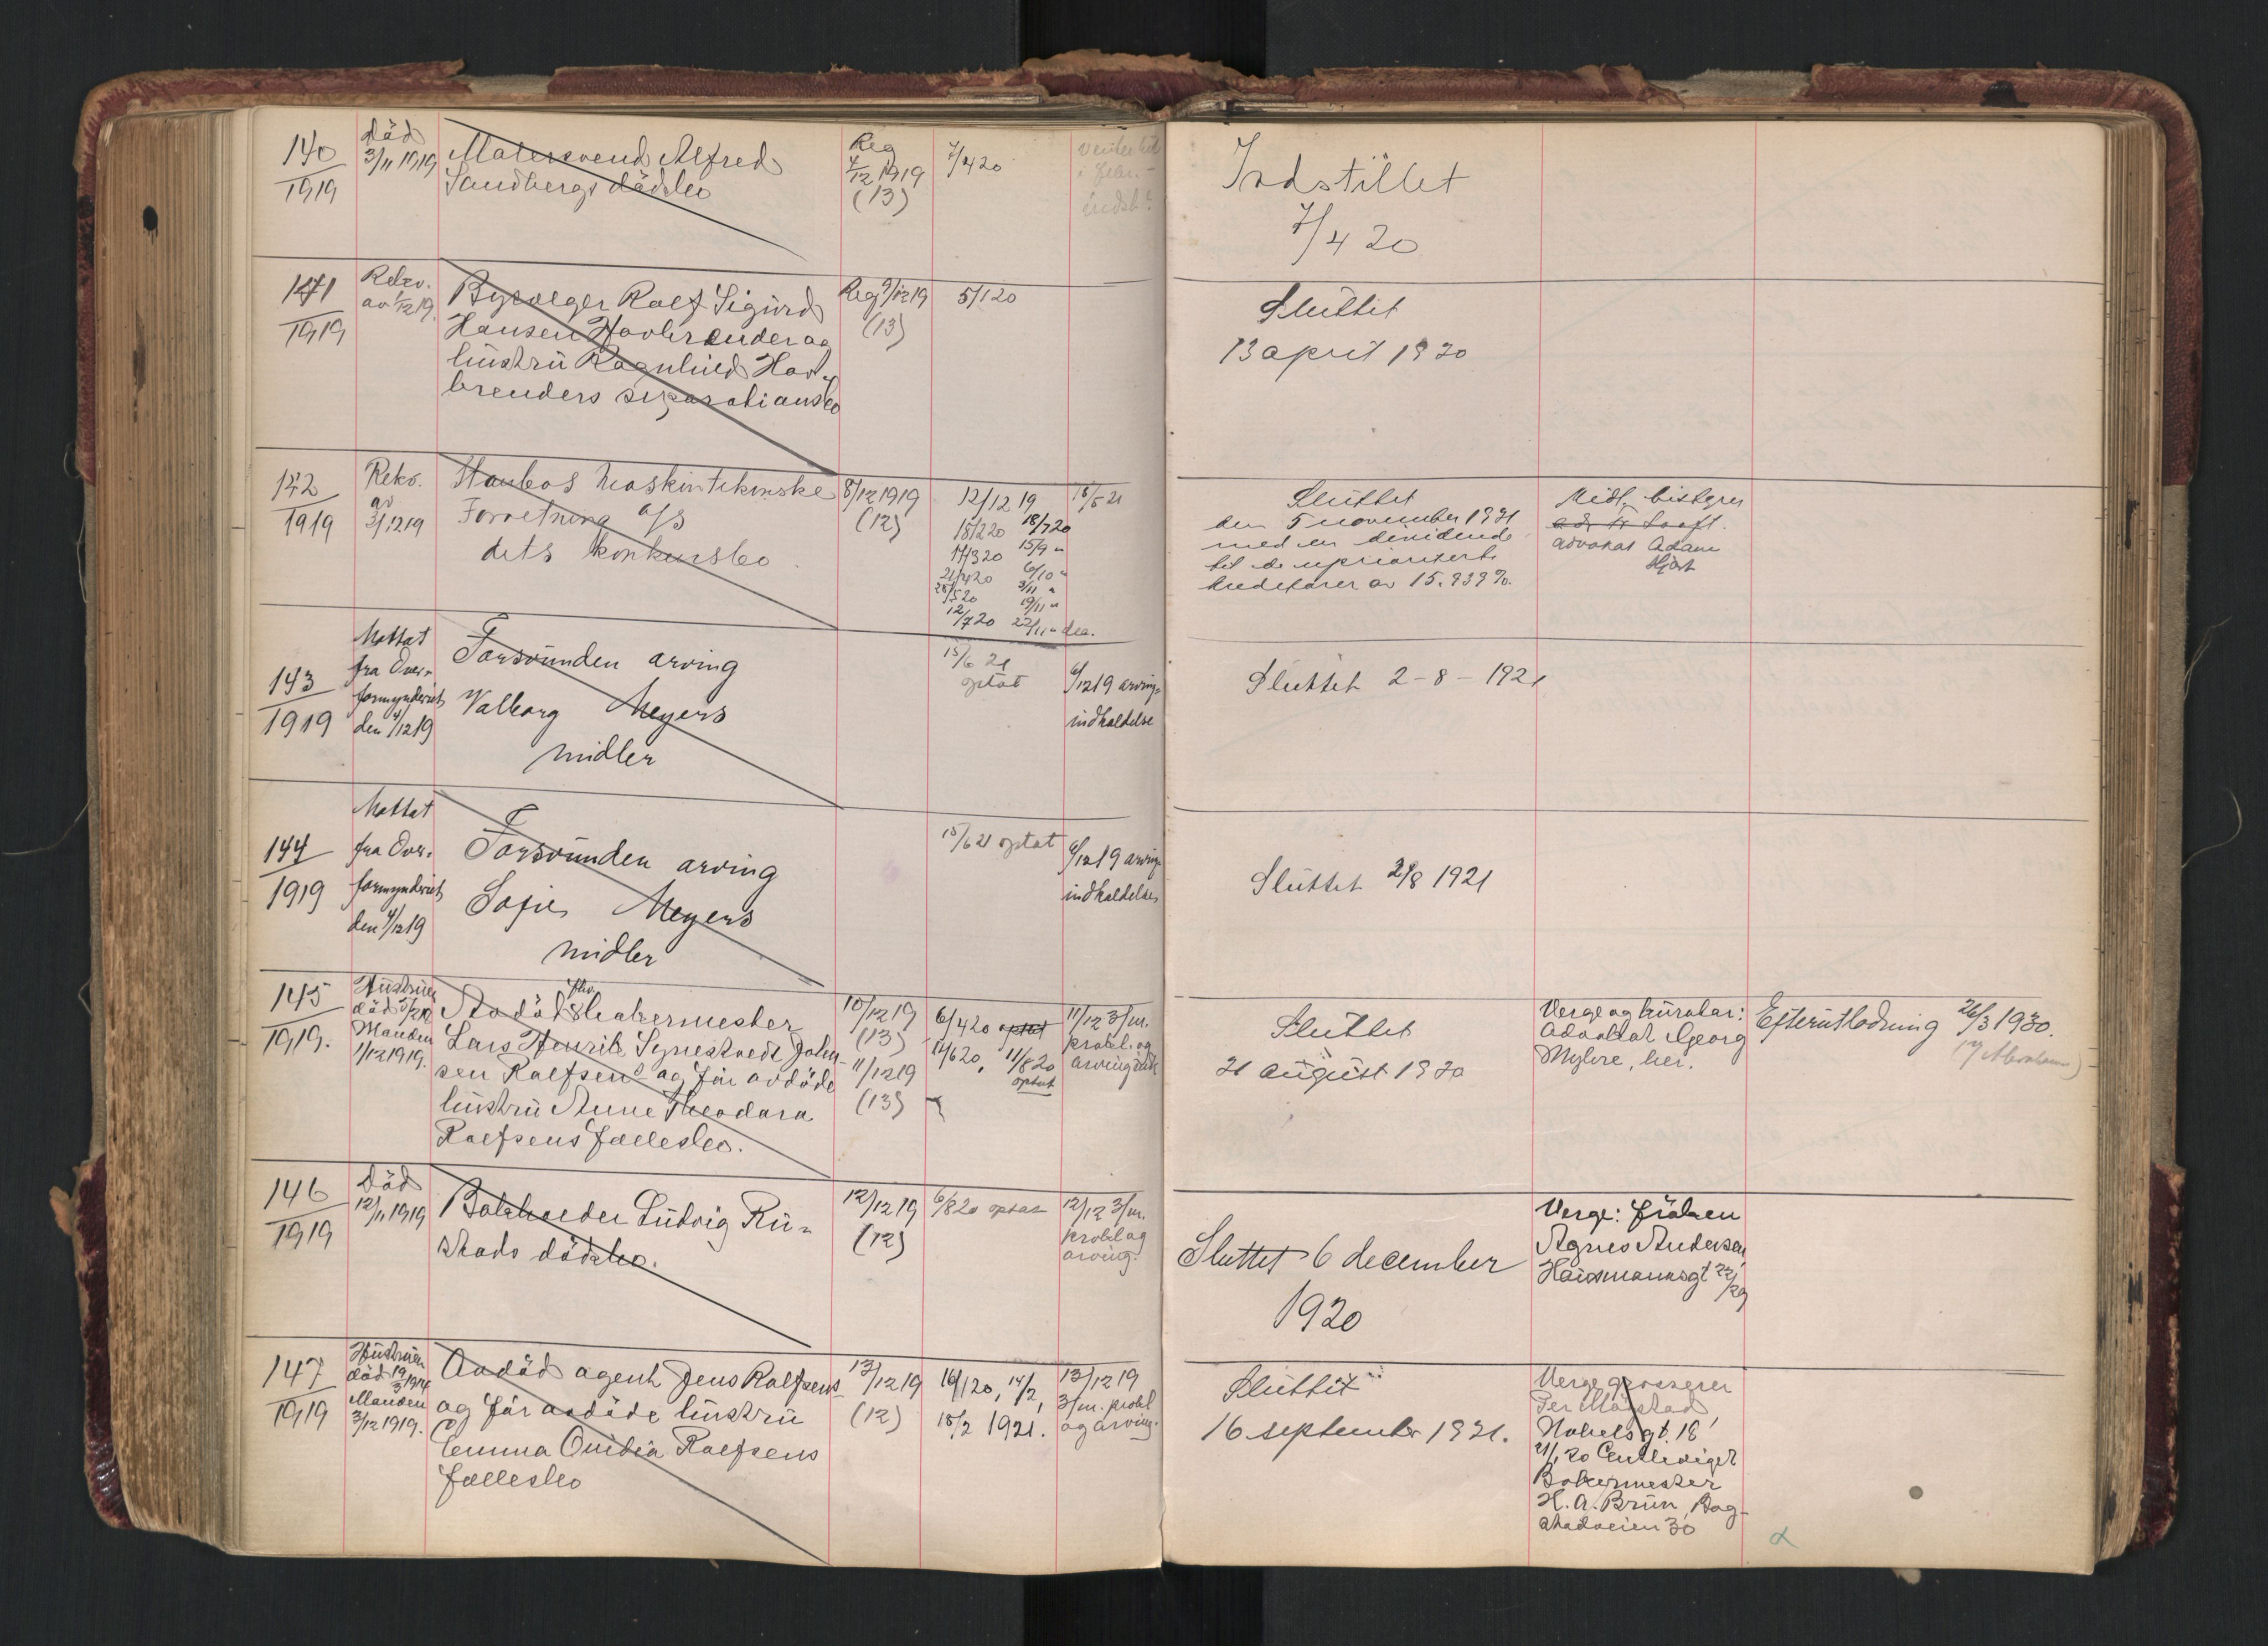 140
1919
Död
3/11 1919
Malersvend Alfred
Sandbergs dödsbo
Reg
4/12 1919
(13)
7/4 20
Indstillet
7/4 20
141
1919
Rekv.
av 1/12 19.
Rolf Sigurd
Hansen Havbrender og
hustru Ragnhild Hav-
brenders separationsbo
Reg 9/12 19
(13)
5/1 20
Sluttet
13 april 1920
142
1919
Rekv.
av
3/12 19
Staubos Maskintekniske
Forretning a/s
dets konkursbo
8/12 1919
(12)
12/12 19
18/2 20 18/7 20
14/3 20 15/9 "
21/4 20 6/10 "
28/5 20 3/11 "
12/7 20 19/11 "
22/11 "
18/5 21
Sluttet
den 5 november 1921
med en dividende
til de uprioriterte
kreditorer av 15.939%.
Midl. bistyrer
advokat Adam
Hjort
143
1919
Mottat
fra Over-
formynderiet
den 4/12 19
Forsvunden arving
Valborg Meyers
midler
15/6 21
optat
6/12 19 arving-
indkaldelse
Sluttet 2-8-1921
144
1919
Mottat
fra Over-
formynderiet
den 4/12 19
Forsvunden arving
Sofie Meyers
midler
15/6 21 optat
6/12 19 arving-
indkaldelse
Sluttet 2/8 1921
145
1919.
Hustruen
död
Manden
1/12 1919.
Avdöd
Lars Henrik Synestvedt John-
sen Rolfsens og før avdöde
hustru Anne Theodora
Rolfsens fællesbo.
10/12 19
(13)
11/12 19
(13)
6/4 20 optat
14/6 20, 11/8 20
optat
11/12 3/m.
prokl. og
arvingindk
Sluttet
21 august 1920
Verge og kurator:
Advokat Georg
Myhre, her.
Efterutlodning 26/3 1930.
146
1919
Död
12/11 1919
Ludvig Ru-
stads dödsbo.
12/12 19
(12)
6/8 20 optat
12/12 3/m.
prokl og
arving.
Sluttet 6 december
1920
Verge: fröken
Agnes Andersen,
Hausmannsgt 22/
29
147
1919
Hustruen
död 19/3 1914
Manden
3/12 1919.
Avdöd agent Jens Rolfsens
og før avdöde hustru
Emma Ovidia Rolfsens
fællesbo
13/12 19
(12)
16/1 20, 14/2,
18/2 1921.
13/12 19
3/m. prokl
og arving.
Sluttet
16 september 1921.
Verge grosserer
Per
Nobelsgt. 18
21/1 20 Entlediget
Bakermester
H. A. Brun, Bog-
stadveien 30